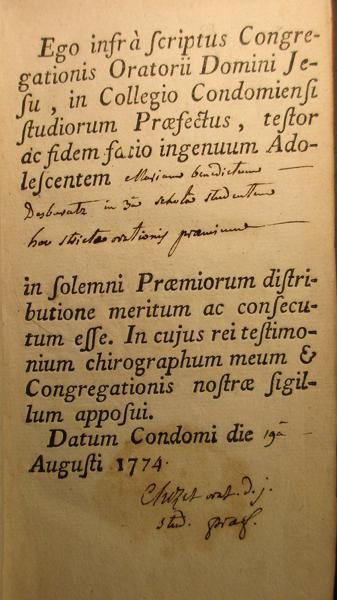 Ego infrà ſcriptus Congre-
gationis Oratorii Domini Je-
ſu, in Collegio Condomienſi
ſtudiorum Præfectus, teſtor
ac fidem facio ingenuum Ado-
leſcentem benedictum
in 3a schola studentem
hoc strictæ orationis præmium
in ſolemni Præmiorum diſtri-
butione meritum ac conſecu-
tum eſſe. In cujus rei teſtimo-
nium chirographum meum &
Congregationis noſtræ ſigil-
lum appoſui.
Datum Condomi die 19a
Auguſti 1774.
orat. d. j.
stud. præf.